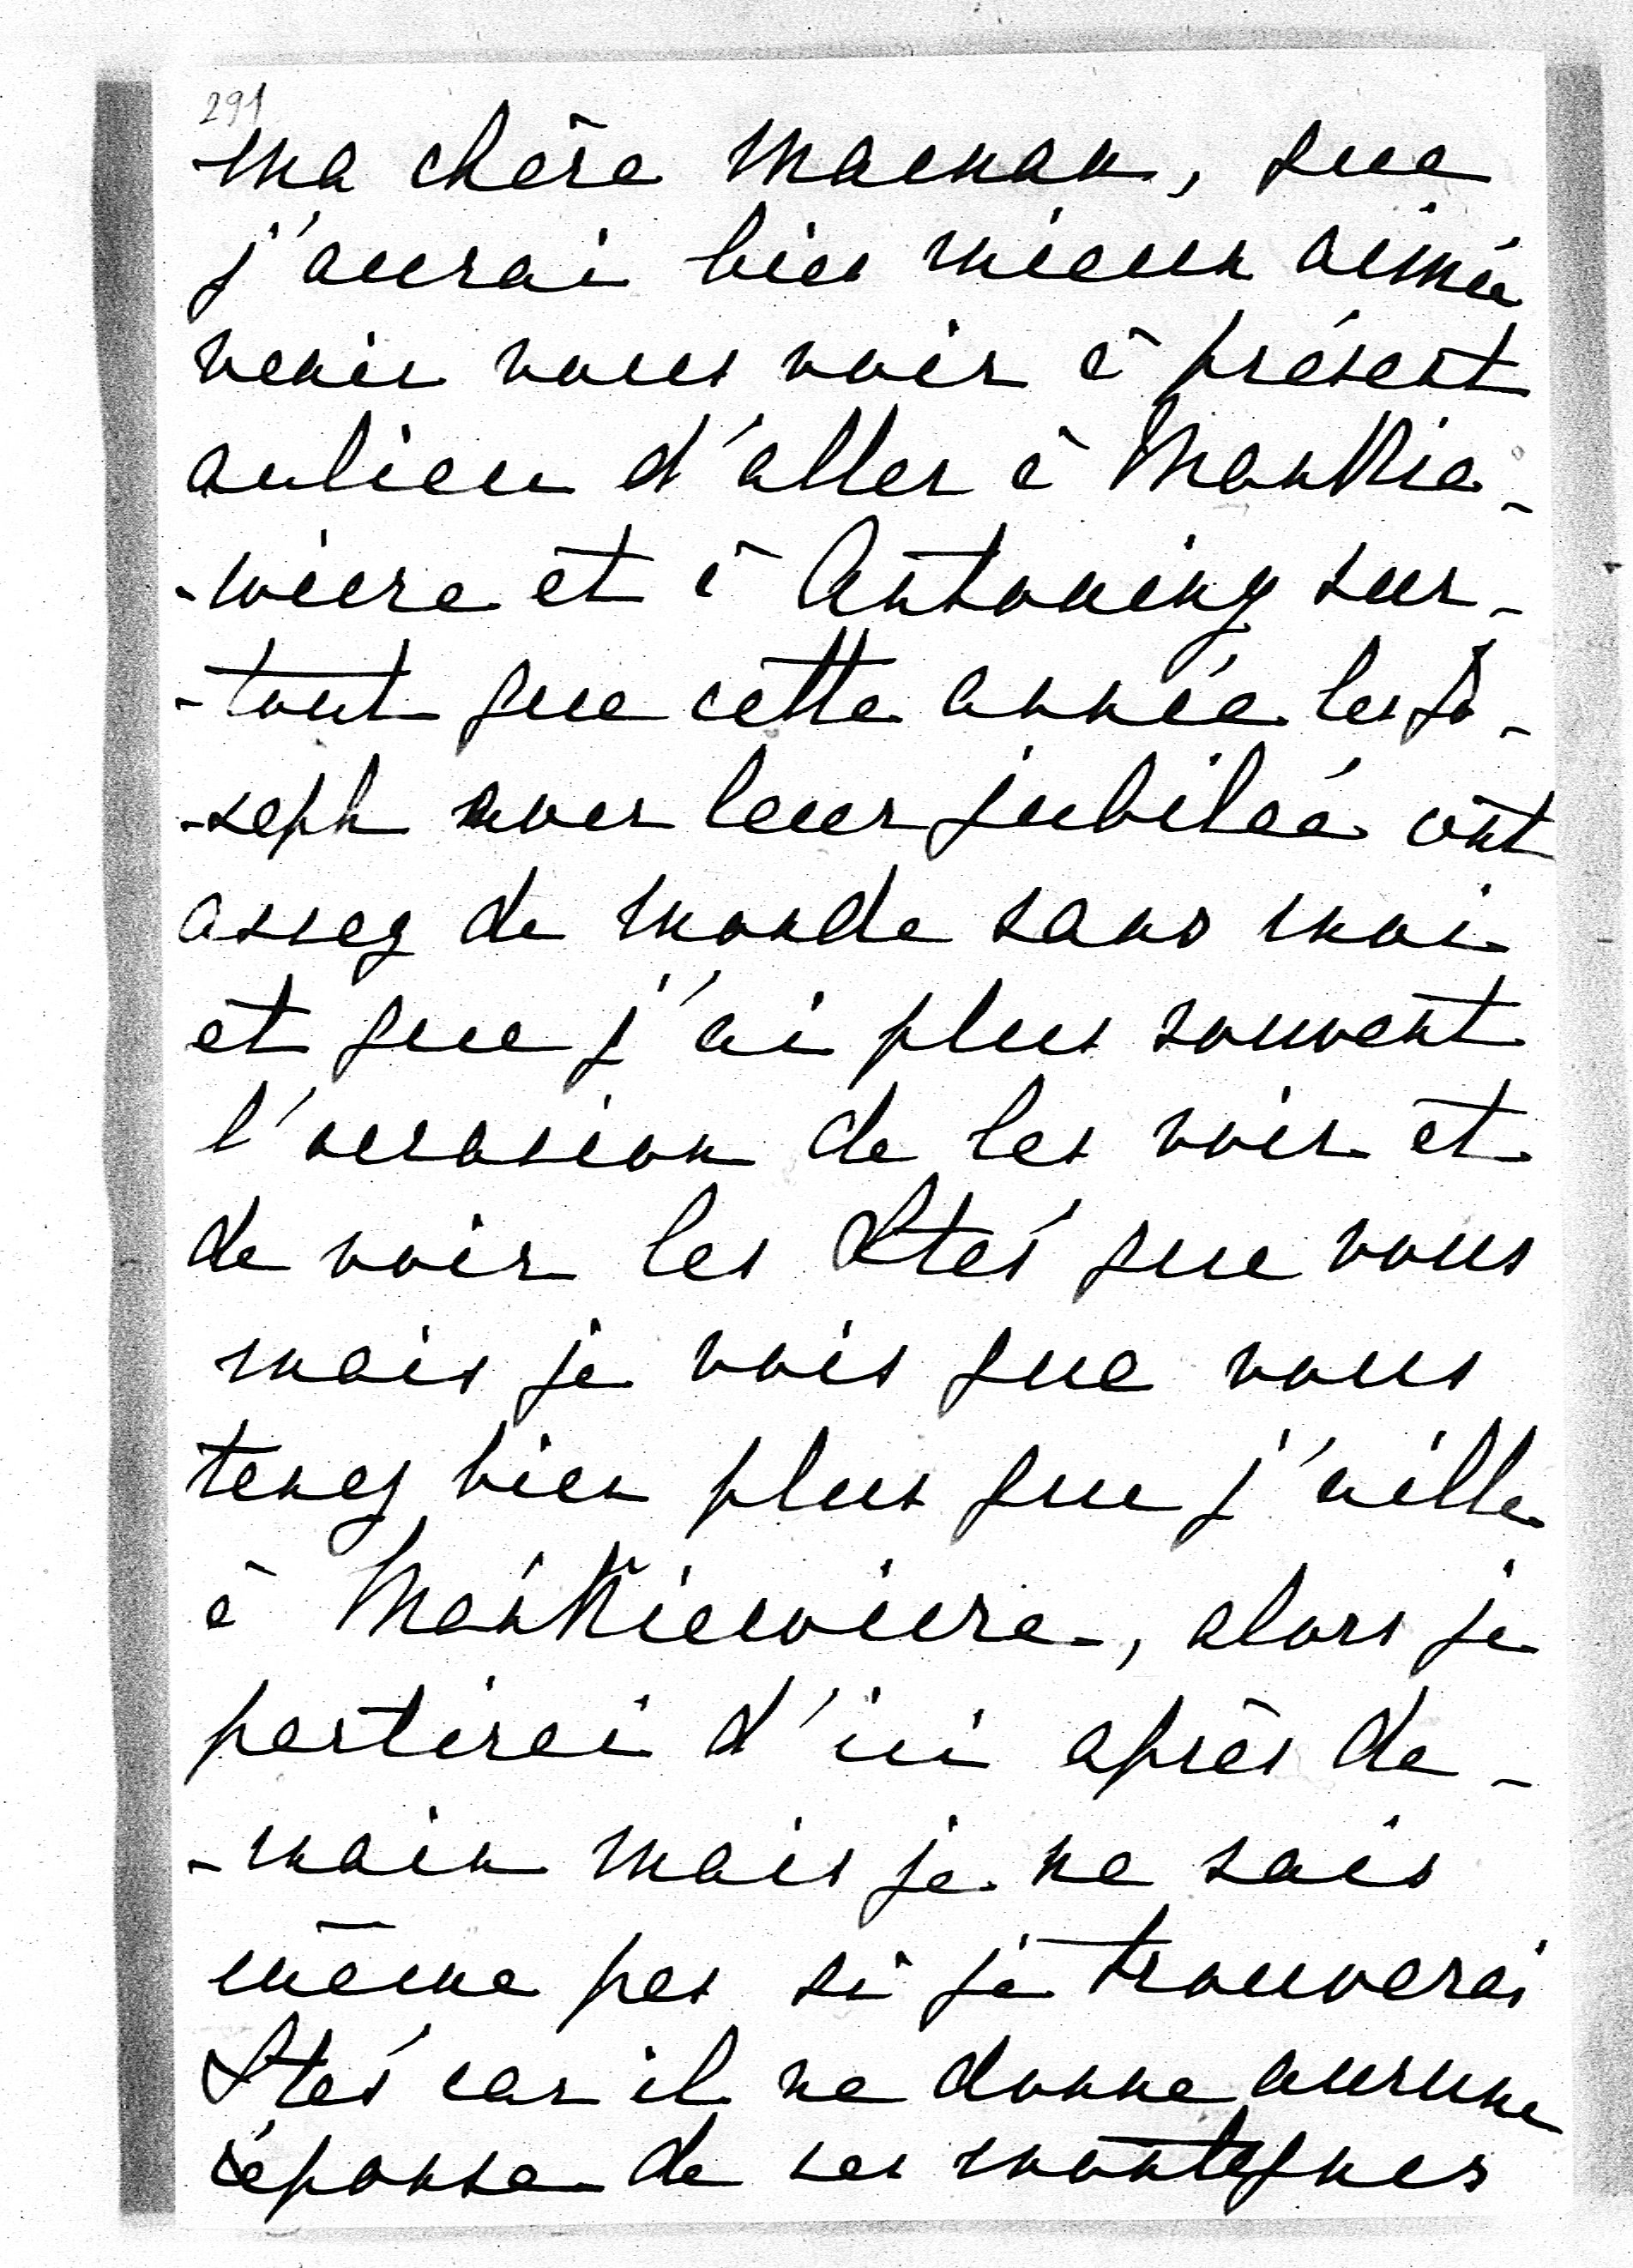 291
ma chère maman, que
j'aurai bien mieux aimée
venir vous voir à présent
aulieu d'aller à Mankie-
-wicre et à Antoniny sur-
-tout que cette année les Jo-
-seph avec leur jubileé ont
assez de monde sans moi
et que j'ai plus souvent
l'occasion de les voir et
de voir les Stés que vous
mais je vois que vous
tenez bien plus que j'aille
à Mańkiewicre, alors je
partirai d'ici après de-
-main mais je ne sais
même pas si je trouverai
Stés car il ne donne aucune
réponse de ses montagnes